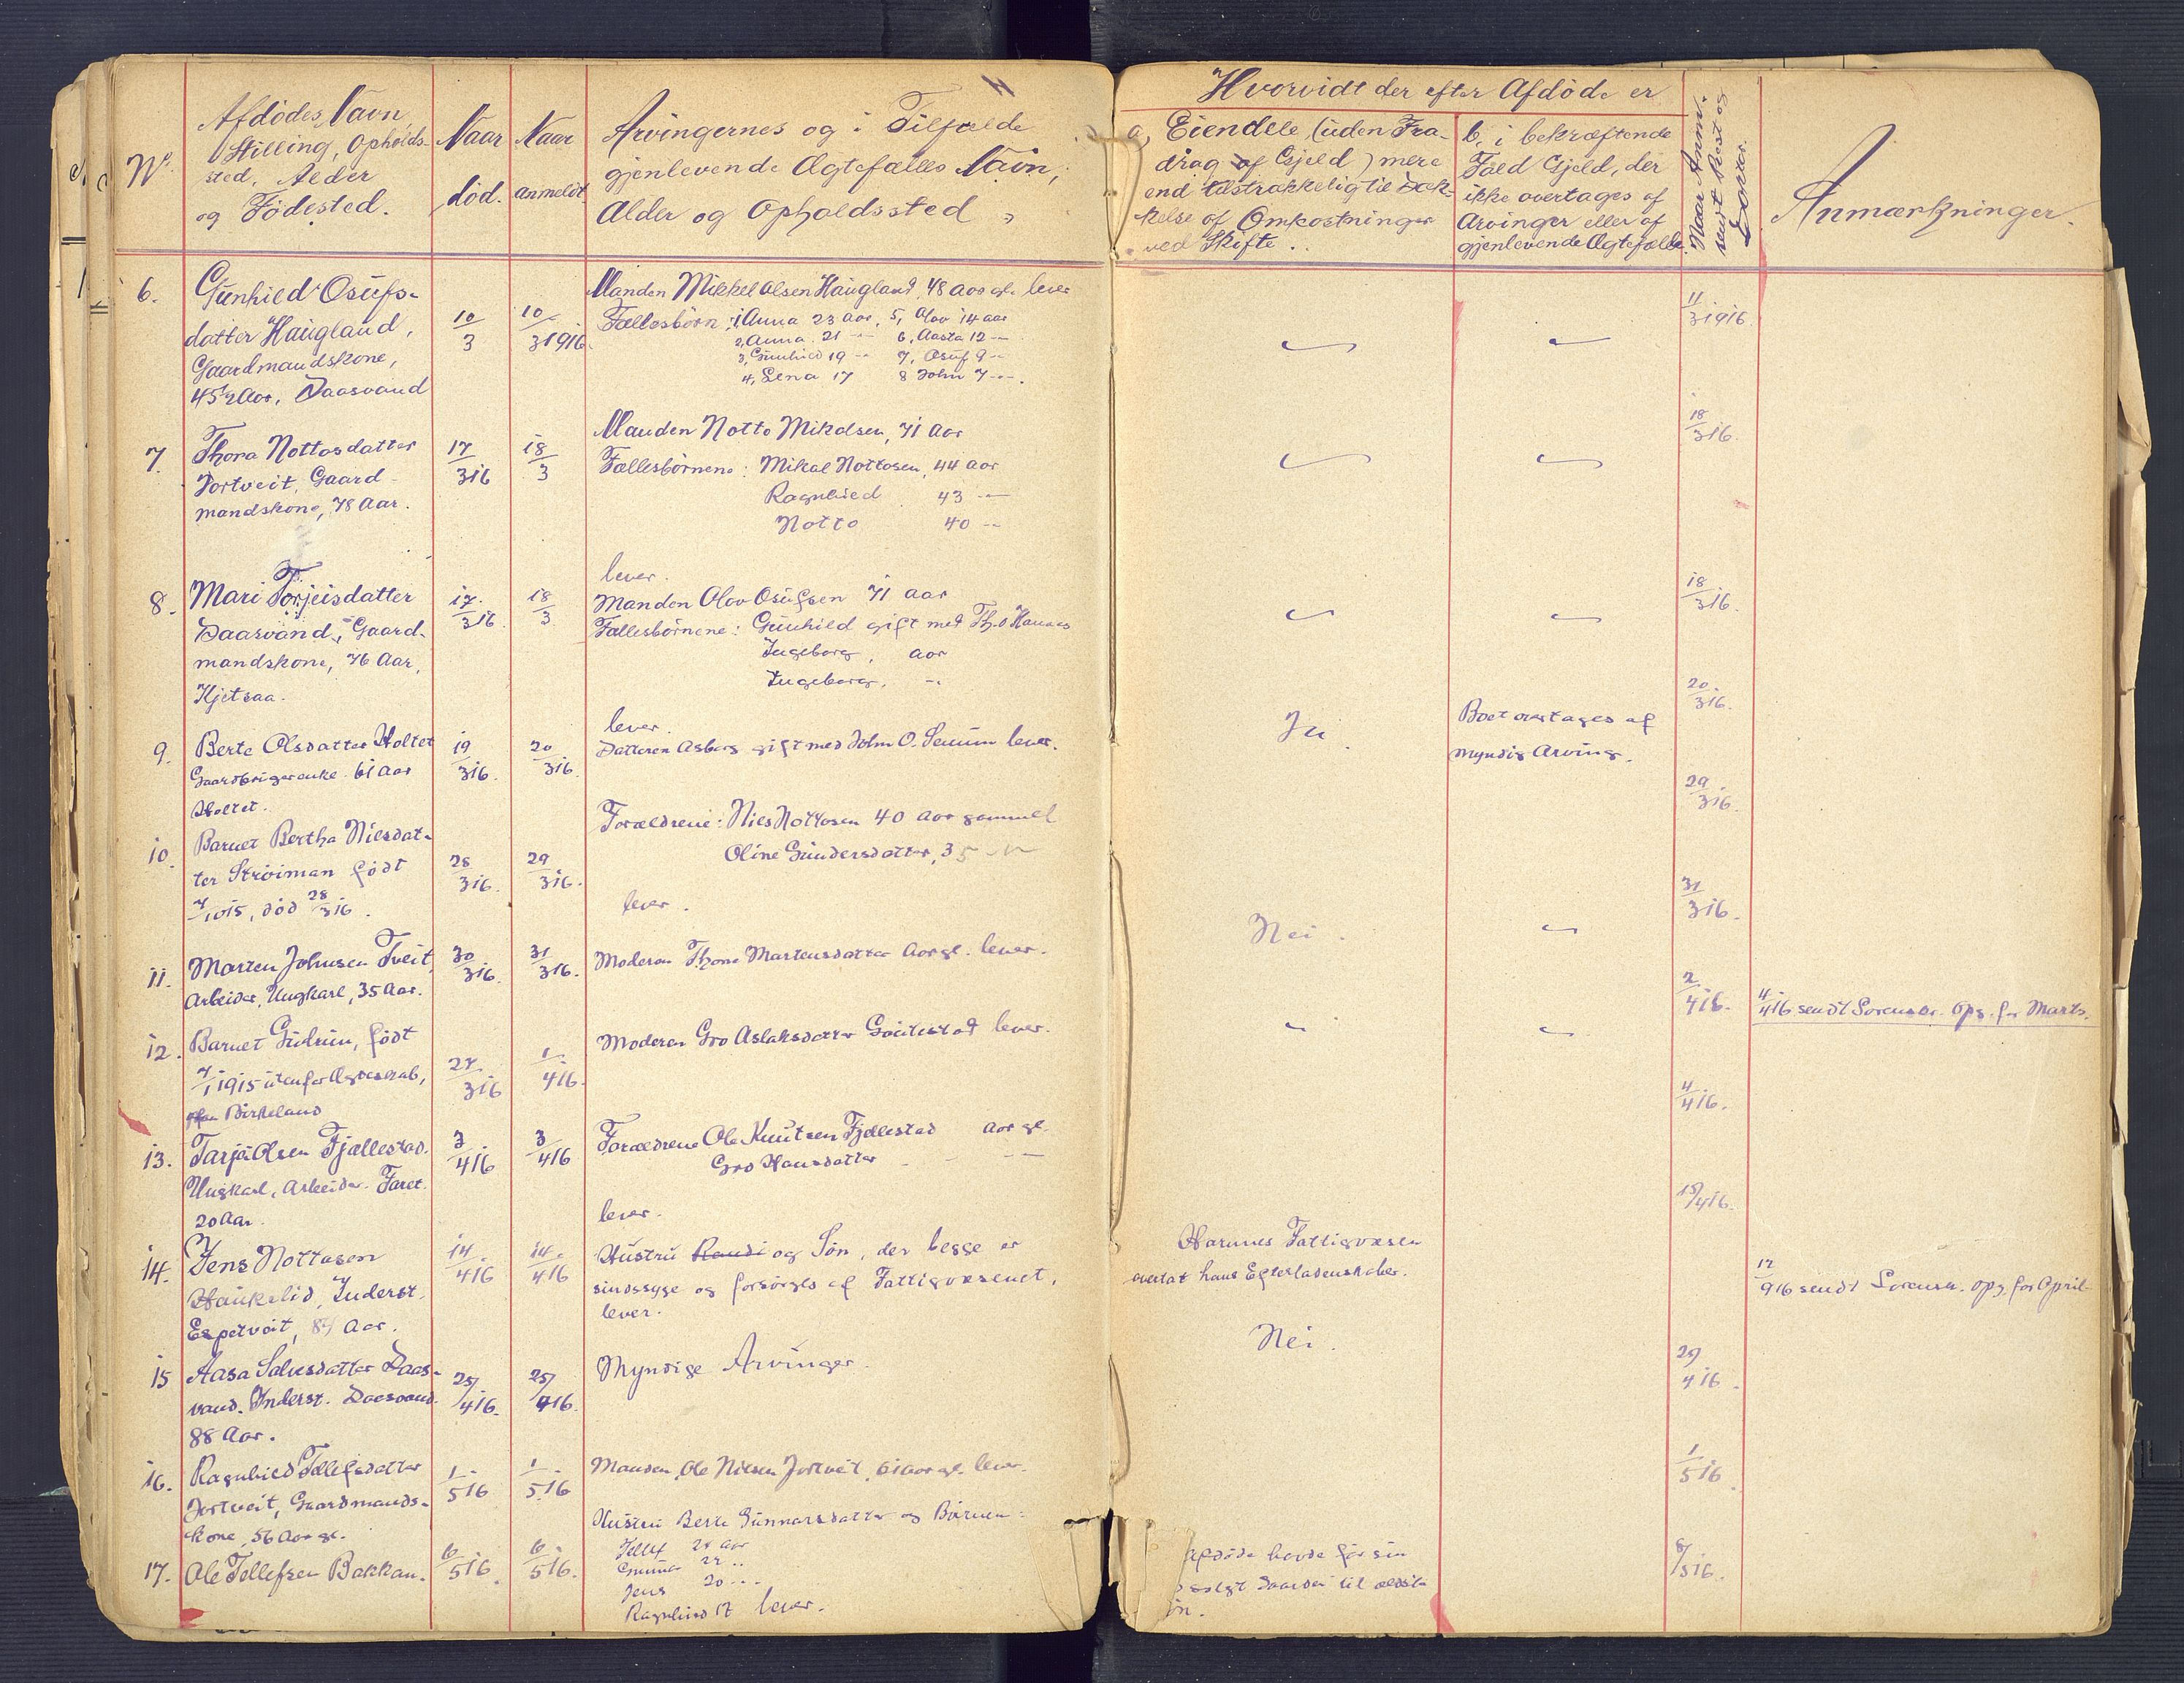 No.
Afdödes Navn,
Stilling, Opholds-
sted, Alder
og Födested.
Naar
död.
Naar
anmeldt
Arvingernes og i Tilfælde
gjenlevende Ægtefælles Navn,
Alder og Opholdssted
Hvorvidt der efter Afdöde er
a, Eiendele (uden Fra-
drag af Gjeld) mere
end tilstrækkelig til Dæk-
kelse af Omkostninger
ved Skifte.
b, i bekræftende
Fald Gjeld, der
ikke overtages af
Arvinger eller af
gjenlevende Ægtefælle.
Naar Anm.
sendt
Anmærkninger.
6.
Gunhild Osufs-
datter Haugland,
Gaardmandskone,
45 1/2 Aar, Daasvand
10/3
10/3 1916.
Manden Mikkel Olsen Haugland, 48 Aar gl. lever
Fællesbörn: 1, Anna 23 Aar, 5, Olav 14 aar
2, Anna 21 -- 6, Aasta 12 --
3, Gunhild 19 -- 7, Osuf 9 --
4, Lena 17 8 John 7 --.
11/3 1916.
7.
Thora Nottosdatter
Jortveit, Gaard-
mandskone, 78 Aar.
17/3 16
18/3
Manden Notto Mikalsen, 71 Aar
Fællesbörnene: Mikal Nottosen, 44 Aar
Ragnhild 43 --
Notto 40 --
lever.
18/3 16.
8.
Mari Torjeisdatter
Daasvand, Gaard-
mandskone, 76 Aar,
Hjetsaa.
17/3 16.
18/3
Manden Olav Osufsen 71 aar
Fællesbörnene: Gunhild gift med Th. O.
Ingeborg, aar
Ingeborg, --
lever.
18/3 16.
9.
Berte Olsdatter Holtet
Gaardbrugerenke. 61 Aar
Holtet.
19/3 16.
20/3 16.
Datteren Asborg gift med John O. Senum lever.
Ja.
Boet overtages af
myndig Arving.
20/3 16.
10.
Barnet Bertha Nilsdat-
ter Ströiman född
7/10 15, död 28/3 16.
28/3 16.
29/3 16.
Forældrene: Nils Nottosen 40 Aar gammel
Oline Gundersdatter, 35 --
lever.
29/3 16.
11.
Marten Johnsen Tveit
Arbeider, Ungkarl, 35 Aar.
30/3 16.
31/3 16.
Moderen Thone Martensdatter Aar gl. lever.
Nei.
31/3 16.
12.
Barnet Gudrun, født
7/1 1915 utenfor Ægteskab,
Birkeland
27/3 16
1/4 16.
Moderen Gro Aslaksdatter lever.
2/4 16.
4/4 16 sendt Sorenskr. Opg. for Marts.
13.
Tarjei Olsen Fjællestad.
Ungkarl, Arbeider. Faret.
20 Aar.
3/4 16
3/4 16
Forældrene Ole Knutsen Fjellestad Aar gl.
Gro Hansdatter - - --
lever.
4/4 16.
14.
Jens Nottosen
Haukelid, Inderst,
Espetveit, 84 Aar.
14/4 16
14/4 16
Hustru Randi og Sön, der begge er
sindssyge og forsörges af Fattigvæsenet,
lever.
Hornnes Fattigvæsen
overtat hans Efterladenskaber.
15/4 16.
12/9 16 sendt Sorensk. Opg. for April
15
Aasa Salvesdatter Daas-
vand. Inderst. Daasvand.
88 Aar.
25/4 16.
25/4 16.
Myndige Arvinger.
Nei.
29/4 16.
16.
Ragnhild Tellefsdatter
Jortveit, Gaardmands-
kone, 56 Aar gl.
1/5 16
1/5 16
Manden, Ole Nilsen Jortveit, 61 Aar gl. lever.
1/5 16.
17.
Ole Tellefsen Bakkan.
6/5 16.
6/5 16.
Hustru Berte Gunnarsdatter og Börnen:
Tellef 24 Aar
Gunnar 22 --
Jens 20 --
Ragnhild 17 lever.
Afdöde havde för sin
solgt Gaarden til ældste
ön.
8/5 16.